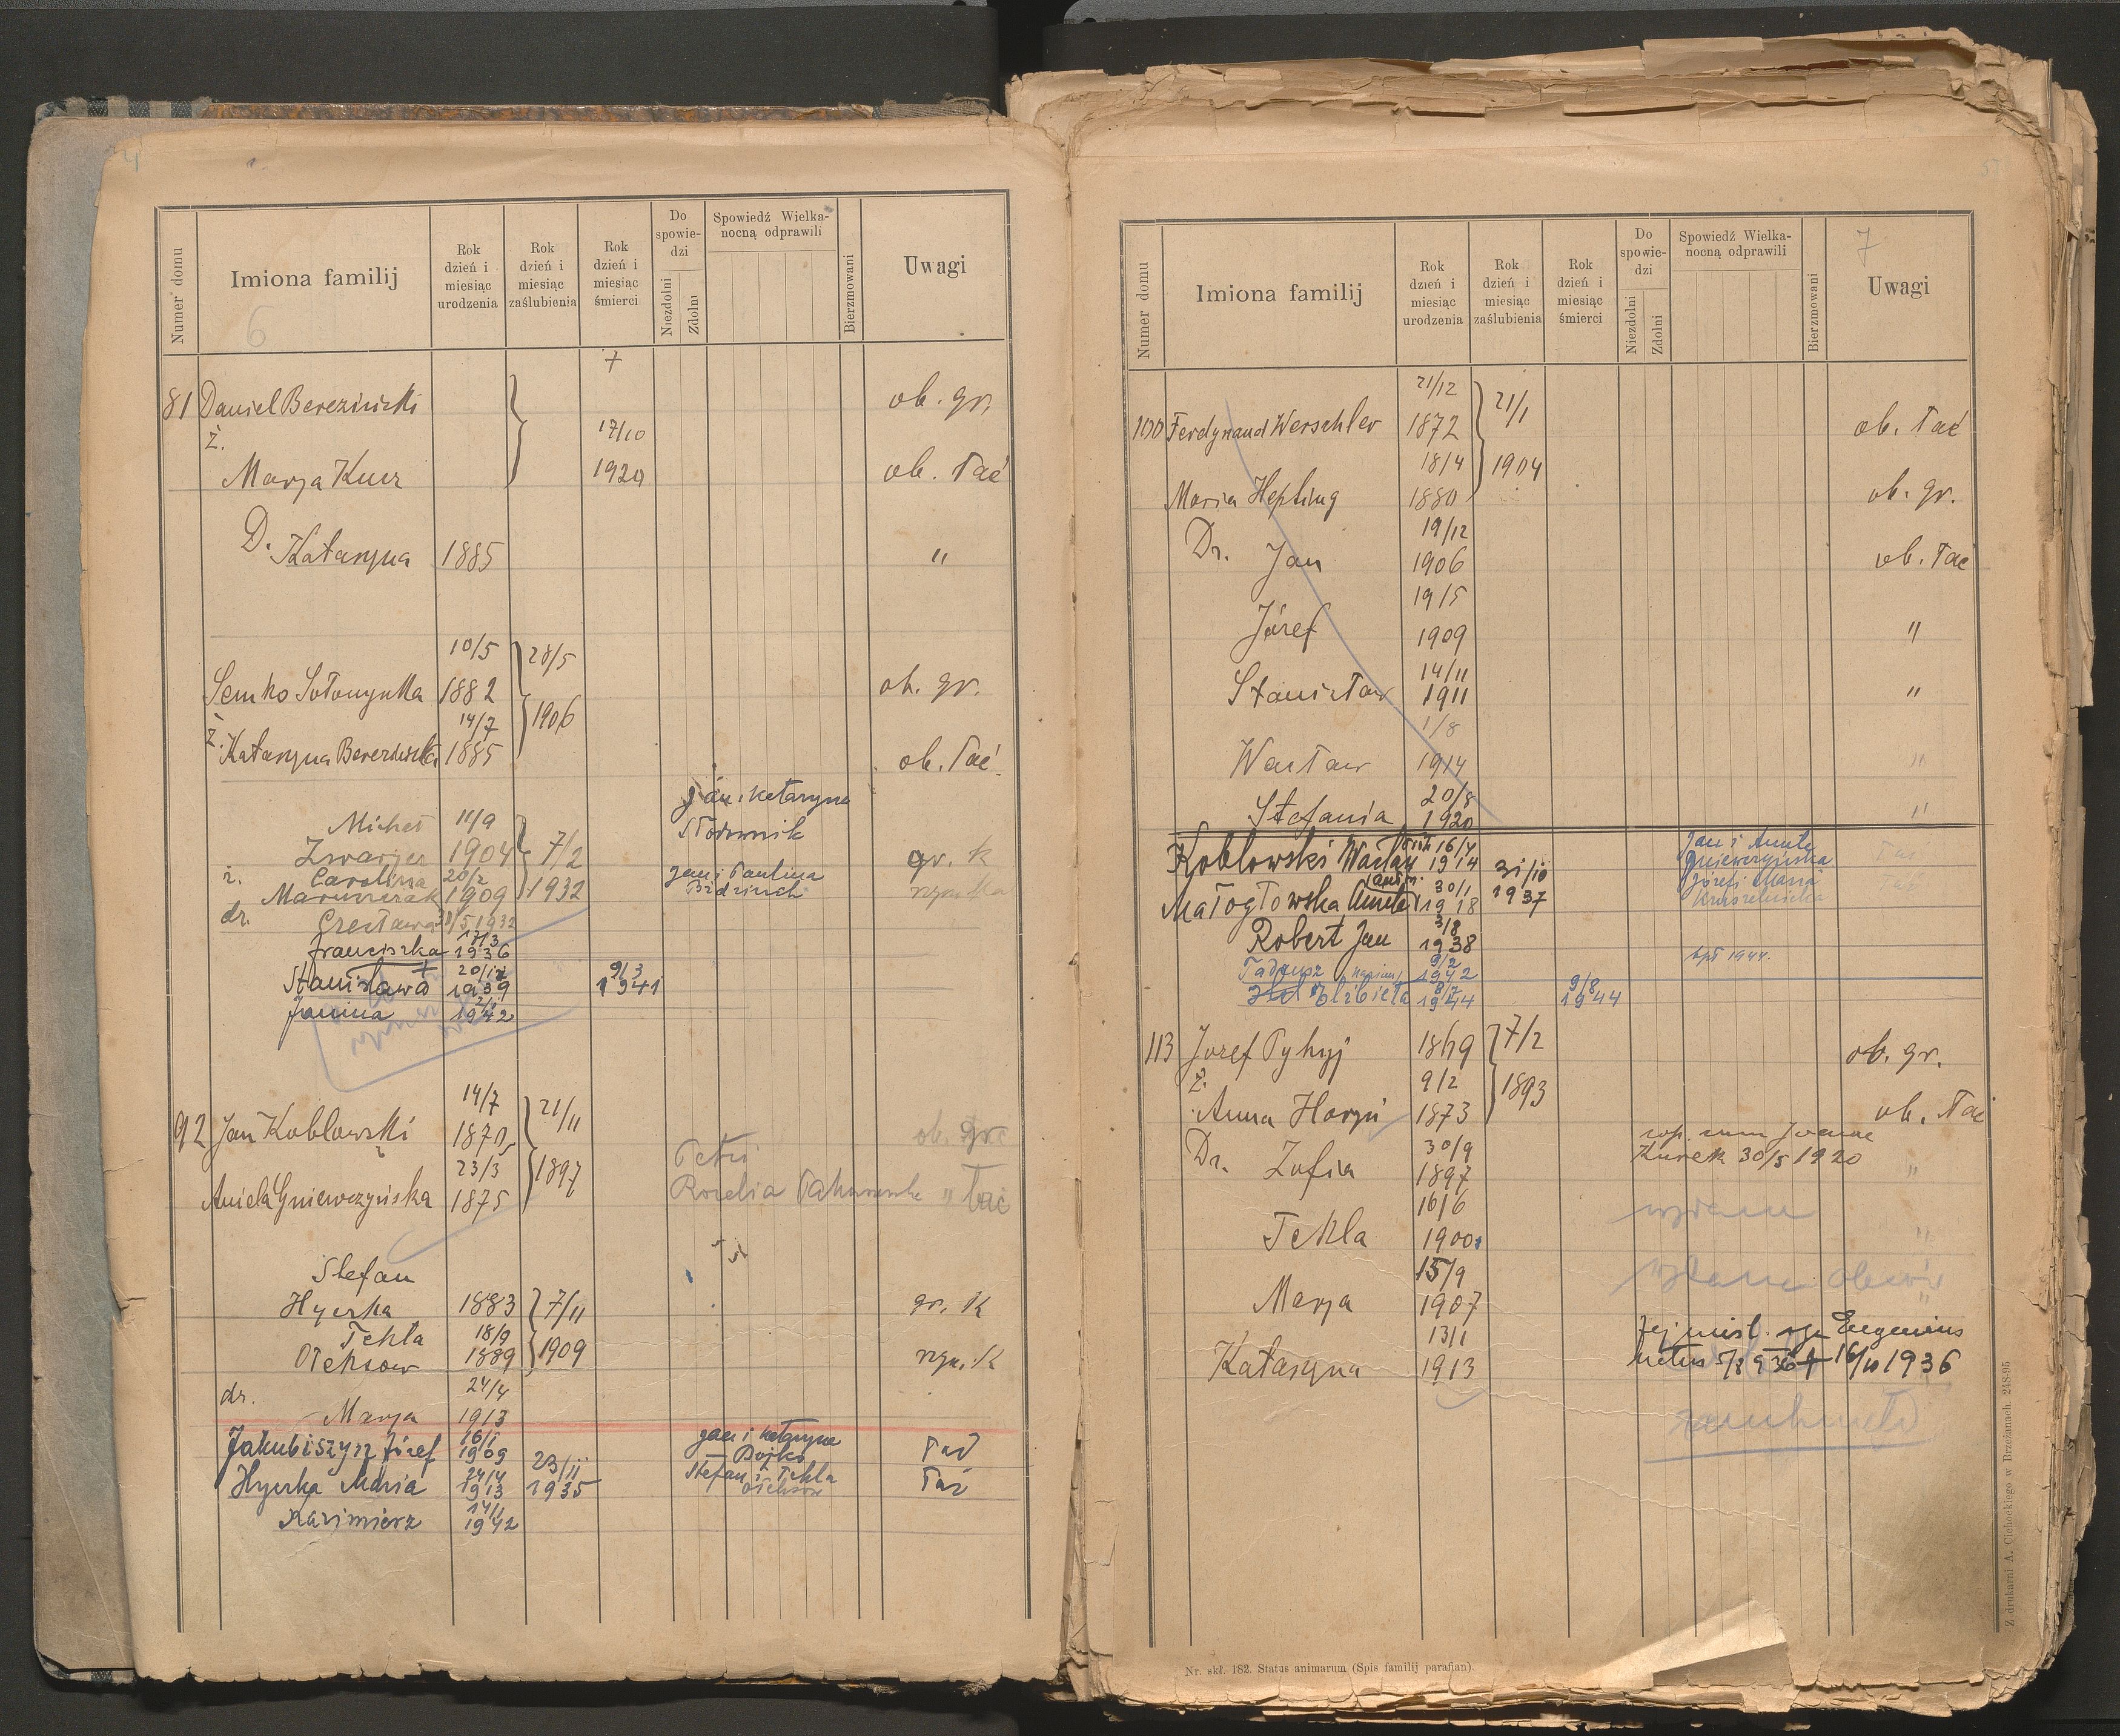 Numer domu
Imiona familij
Rok dzień i miesiąc urodzenia
Rok dzień i miesiąc zaślubienia
Rok dzień i miesiąc śmierci
Do spowiedzi
Niezdolni
Zdolni
Spowiedź Wielka-
nocną odprawili
Bierzmowani
Uwagi
6
+
81 Daniel Berezinicki ob. gr.
ż. 17/10
Marja Kurz 1920 ob. łac
D. Katarzyna 1885 "
10/5 28/5
Semko Sołonynka 1882 ob. gr.
14/7 1906
ż. Katarzyna Berezinicka 1885 ob. łac.
Jan i Katarzyna
Michał 11/9
Zwarycz 1904 7/2 gr. k
ż. Carolina 20/2 Jan i Paulina
1909 1932
dr. Czesława 31/5 1932
17/3
Franciszka 1936
+ 20/12 9/3
Stanisława 1939 1941
2/1
Janina 1942
14/7 21/11
92 Jan Kobłowski 1870 ob. grc
23/3 1897 Petri
Aniela Gniewczyńska 1875 Rozalia " łac
Stefan
Hyerka 1883 7/11 gr. K
Tekla 18/9
Ołeksow 1889 1909 rzym. K
dr. 24/4
Marja 1913
16/1 Jan i Katarzyna
Jakubiszyn Józef 1909 23/11 Bojko łać
24/4 Stefan i Tekla
Hyerka Maria 1913 1935 Ołeksow łać
14/1
Kazimierz 1942
7
Numer domu
Imiona familij
Rok dzień i miesiąc urodzenia
Rok dzień i miesiąc zaślubienia
Rok dzień i miesiąc śmierci
Do spowiedzi
Niezdolni
Zdolni
Spowiedź Wielka-
nocną odprawili
Bierzmowani
Uwagi
21/12 21/1
100 Ferdynand Werschler 1872 ob. łac
18/4 1904
Maria Hepting 1880 ob. gr.
19/12
Dr. Jan 1906 ob. łac
19/5
Józef 1909 "
14/11
Stanisław 1911 "
1/8
Wacław 1914 "
20/8
Stefania 1920 "
16/4 Jan i Aniela
Kobłowski Wacław 1914 31/10 Gniewczyńska
30/1 Józef i Maria
Małogłowska Aniela 1918 1937
3/8
Robert Jan 1938
9/2
Tadeusz 1942 1944
8/7 9/8
Elżbieta 1944 1944
113 Józef Pyhyj 1869 7/2 ob. gr.
ż. 9/2 1893
Anna Haryń 1873 ob. łac
Dr. 30/9 cop. cum Joanne
Zofia 1897 Kurek 30/5 1920 "
16/6
Tekla 1900 "
15/9
Marja 1907 "
13/1 Eugenius
Katarzyna 1913 natus 5/8 936 + 16/10 1936
Nr. skł. 182. Status animarum (Spis familij parafian)
Z drukarni A. Cichockiego w Brzeżanach. 248-95